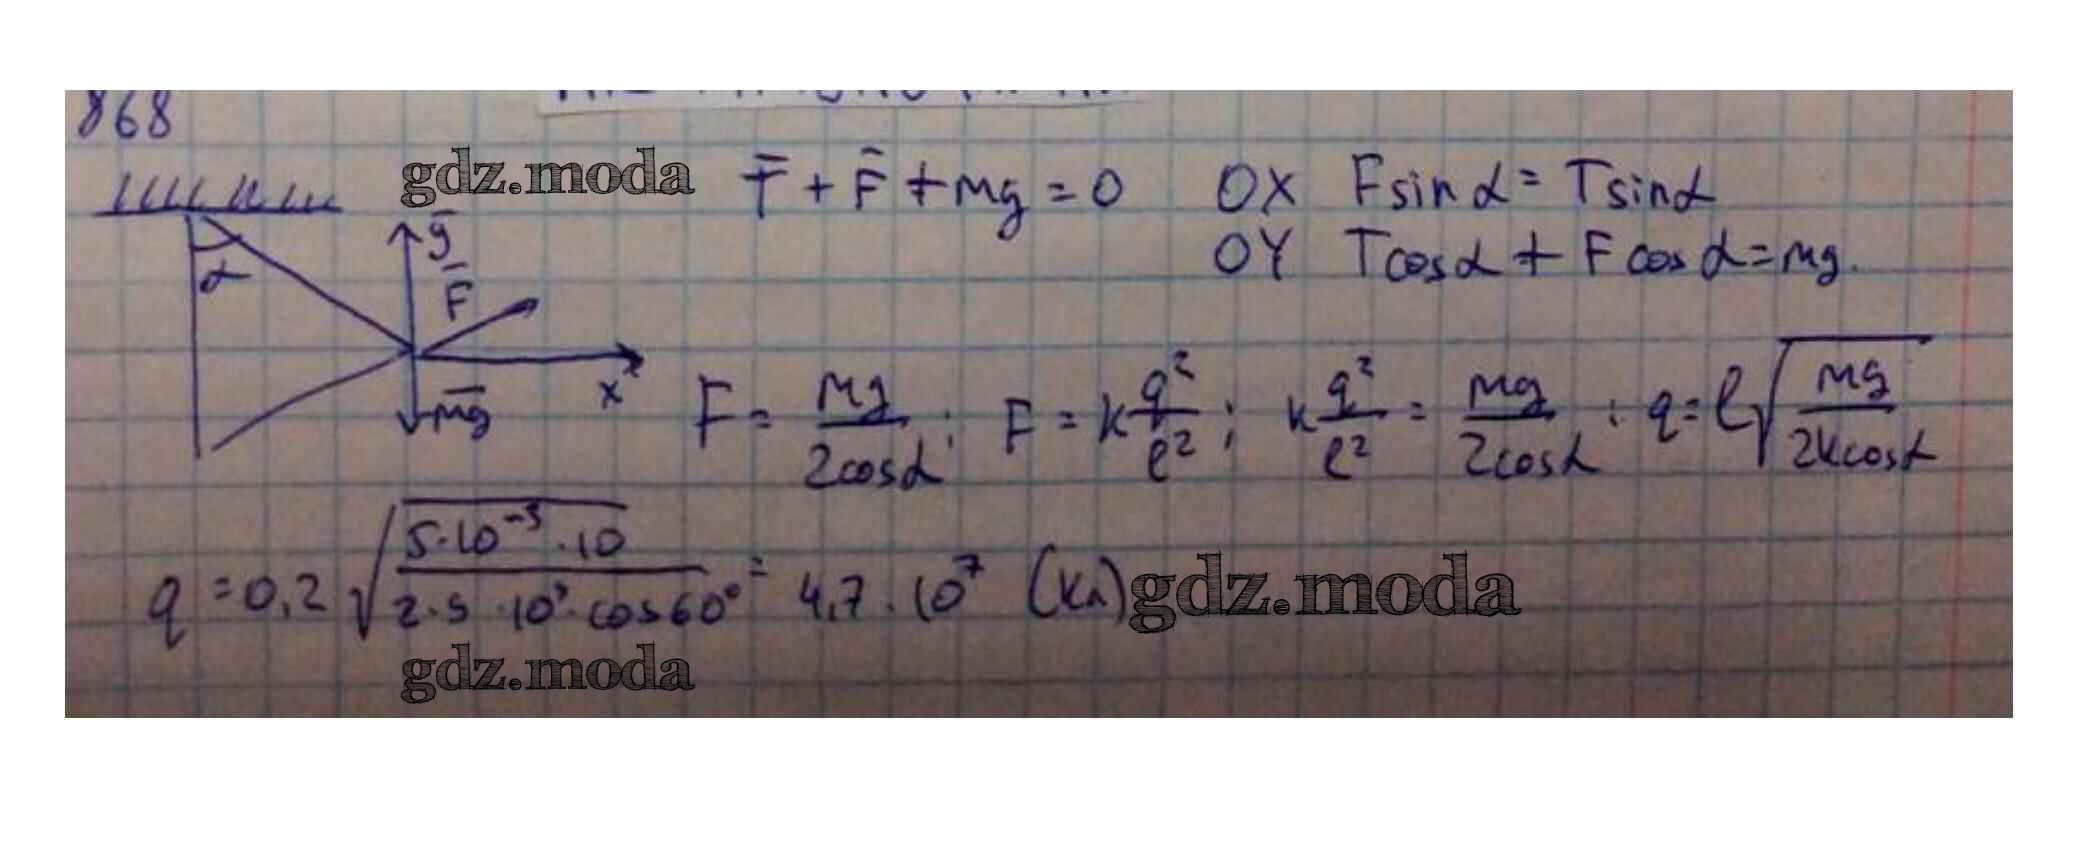 868
gdz.moda
T̄ + F̄ + mg = 0   OX   F sin α = T sin α
OY   T cos α + F cos α = mg.
α
ȳ
F̄
x
m̄g
F = mg/2cosα ; F = k q²/ℓ² ; k q²/ℓ² = mg/2cosα ; q = ℓ√(mg/2kcosα)
q = 0,2 √(5·10⁻³·10 / 2·5·10⁹·cos60°) = 4,7·10⁷ (Кл)
gdz.moda
gdz.moda